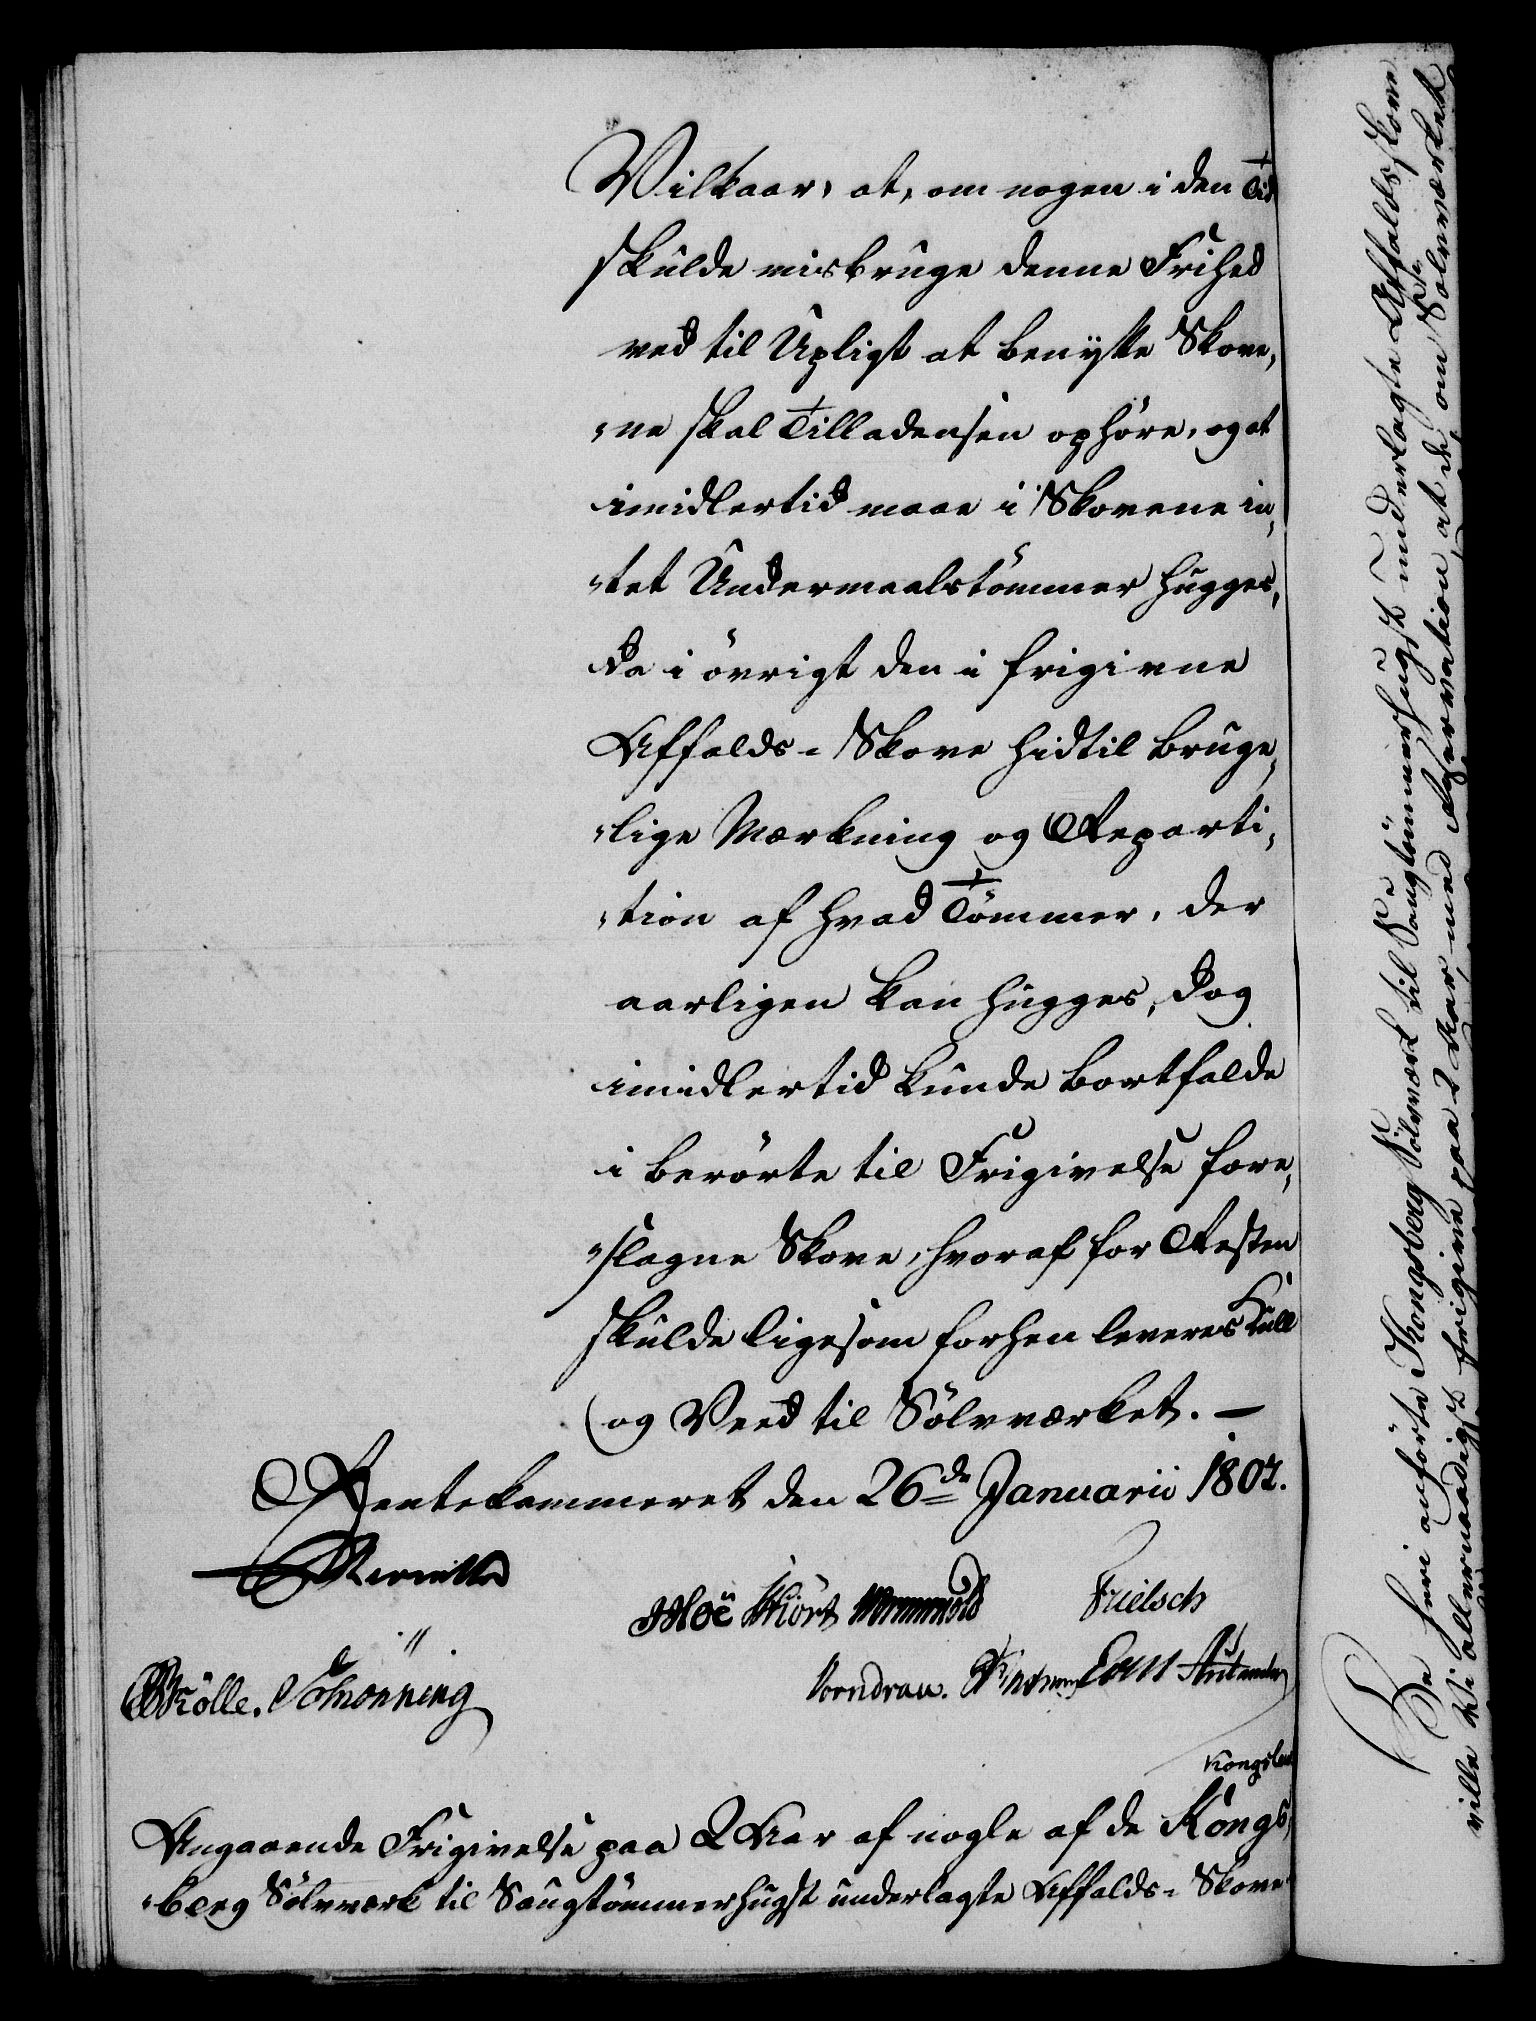 Vilkaar, at, om nogen i den Tid
skulde misbruge denne Frihed
ved til Upligt at benytte Skove,
„ne skal Tilladensen ophöre, og at
imidlertid maae i Skovene in,
„tet Undermaalstömmer hugges,
da i övrigt den i frigivne
Affalds-Skove hidtil bruge,
„lige Mærkning og Reparti,
„tion af hvad Tömmer, der
aarligen kan hugges, dog
imidlertid kunde bortfalde
i berörte til Frigivelse fore,
„slagne Skove, hvoraf for Resten
skulde ligesom forhen leveres Kull
og Veed til Sölvværket. —
Rentekammeret den 26de Januarii 1802.
Hoë Hiort Wormskiold Frielsch
Mölle. Schönning
Vorndran.
Kongsberg
Angaaende Frigivelse paa 2 Aar af nogle af de Kongs,
„berg Sölvværk til Saugtömmerhugst underlagte Affalds-Skove
De heri anförte Kongsberg Sölvværk til Saugtömmerhugst underlagte Affaldsskove
ville Vi allernaadigst frigive paa 2 Aar, med Observation, at de, om Sölvværket